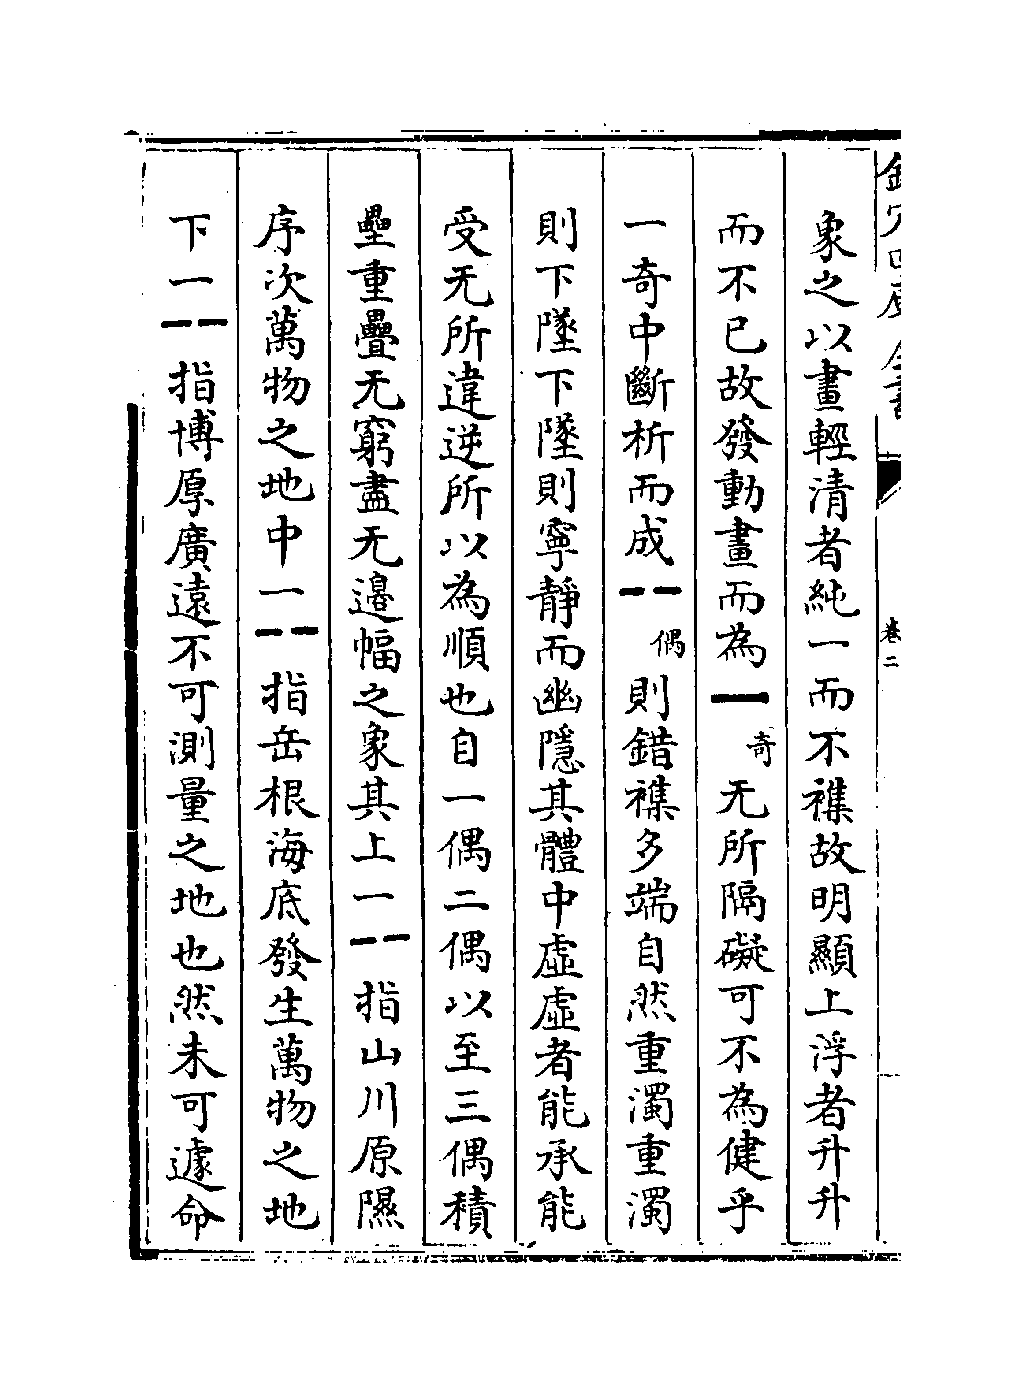 欽定四庫全書
卷二
象之以畫輕清者純一而不襍故明顯上浮者升升
而不已故發動畫而為⚊奇无所隔礙可不為健乎
一奇中斷析而成⚋偶則錯襍多端自然重濁重濁
則下墜下墜則寧靜而幽隱其體中虛虛者能承能
受无所違逆所以為順也自一偶二偶以至三偶積
壘重疊无窮盡无邊幅之象其上一⚋指山川原隰
序次萬物之地中一⚋指岳根海底發生萬物之地
下一⚋指博厚廣遠不可測量之地也然未可遽命